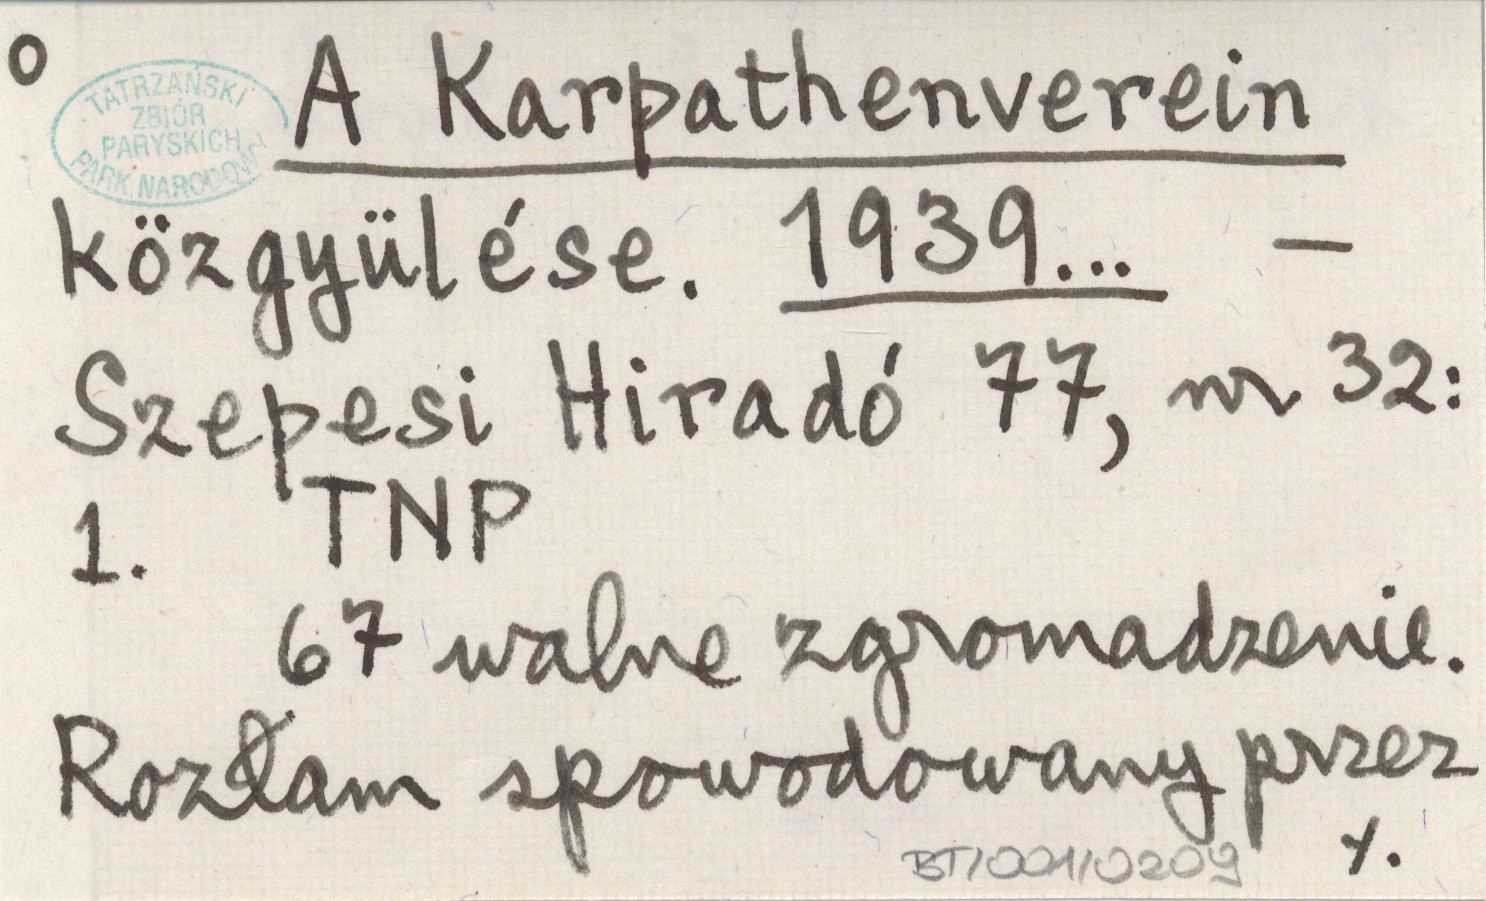 O
TATRZAŃSKI
ZBIÓR
PARYSKICH
PARK NARODOWY
A Karpathenverein
közgyülése. 1939... –
Szepesi Hiradó 77, nr 32:
1. TNP
67 walne zgromadzenie.
Rozłam spowodowany przez
BT/001/0209